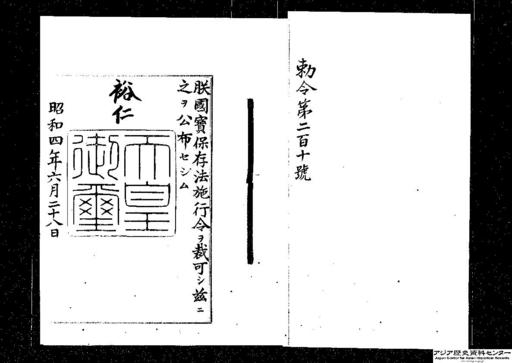 勅令第二百十號
朕國寶保存法施行令ヲ裁可シ茲ニ
之ヲ公布セシム
裕仁
天皇
御璽
昭和四年六月二十八日
アジア歴史資料センター
Japan Center for Asian Historical Records